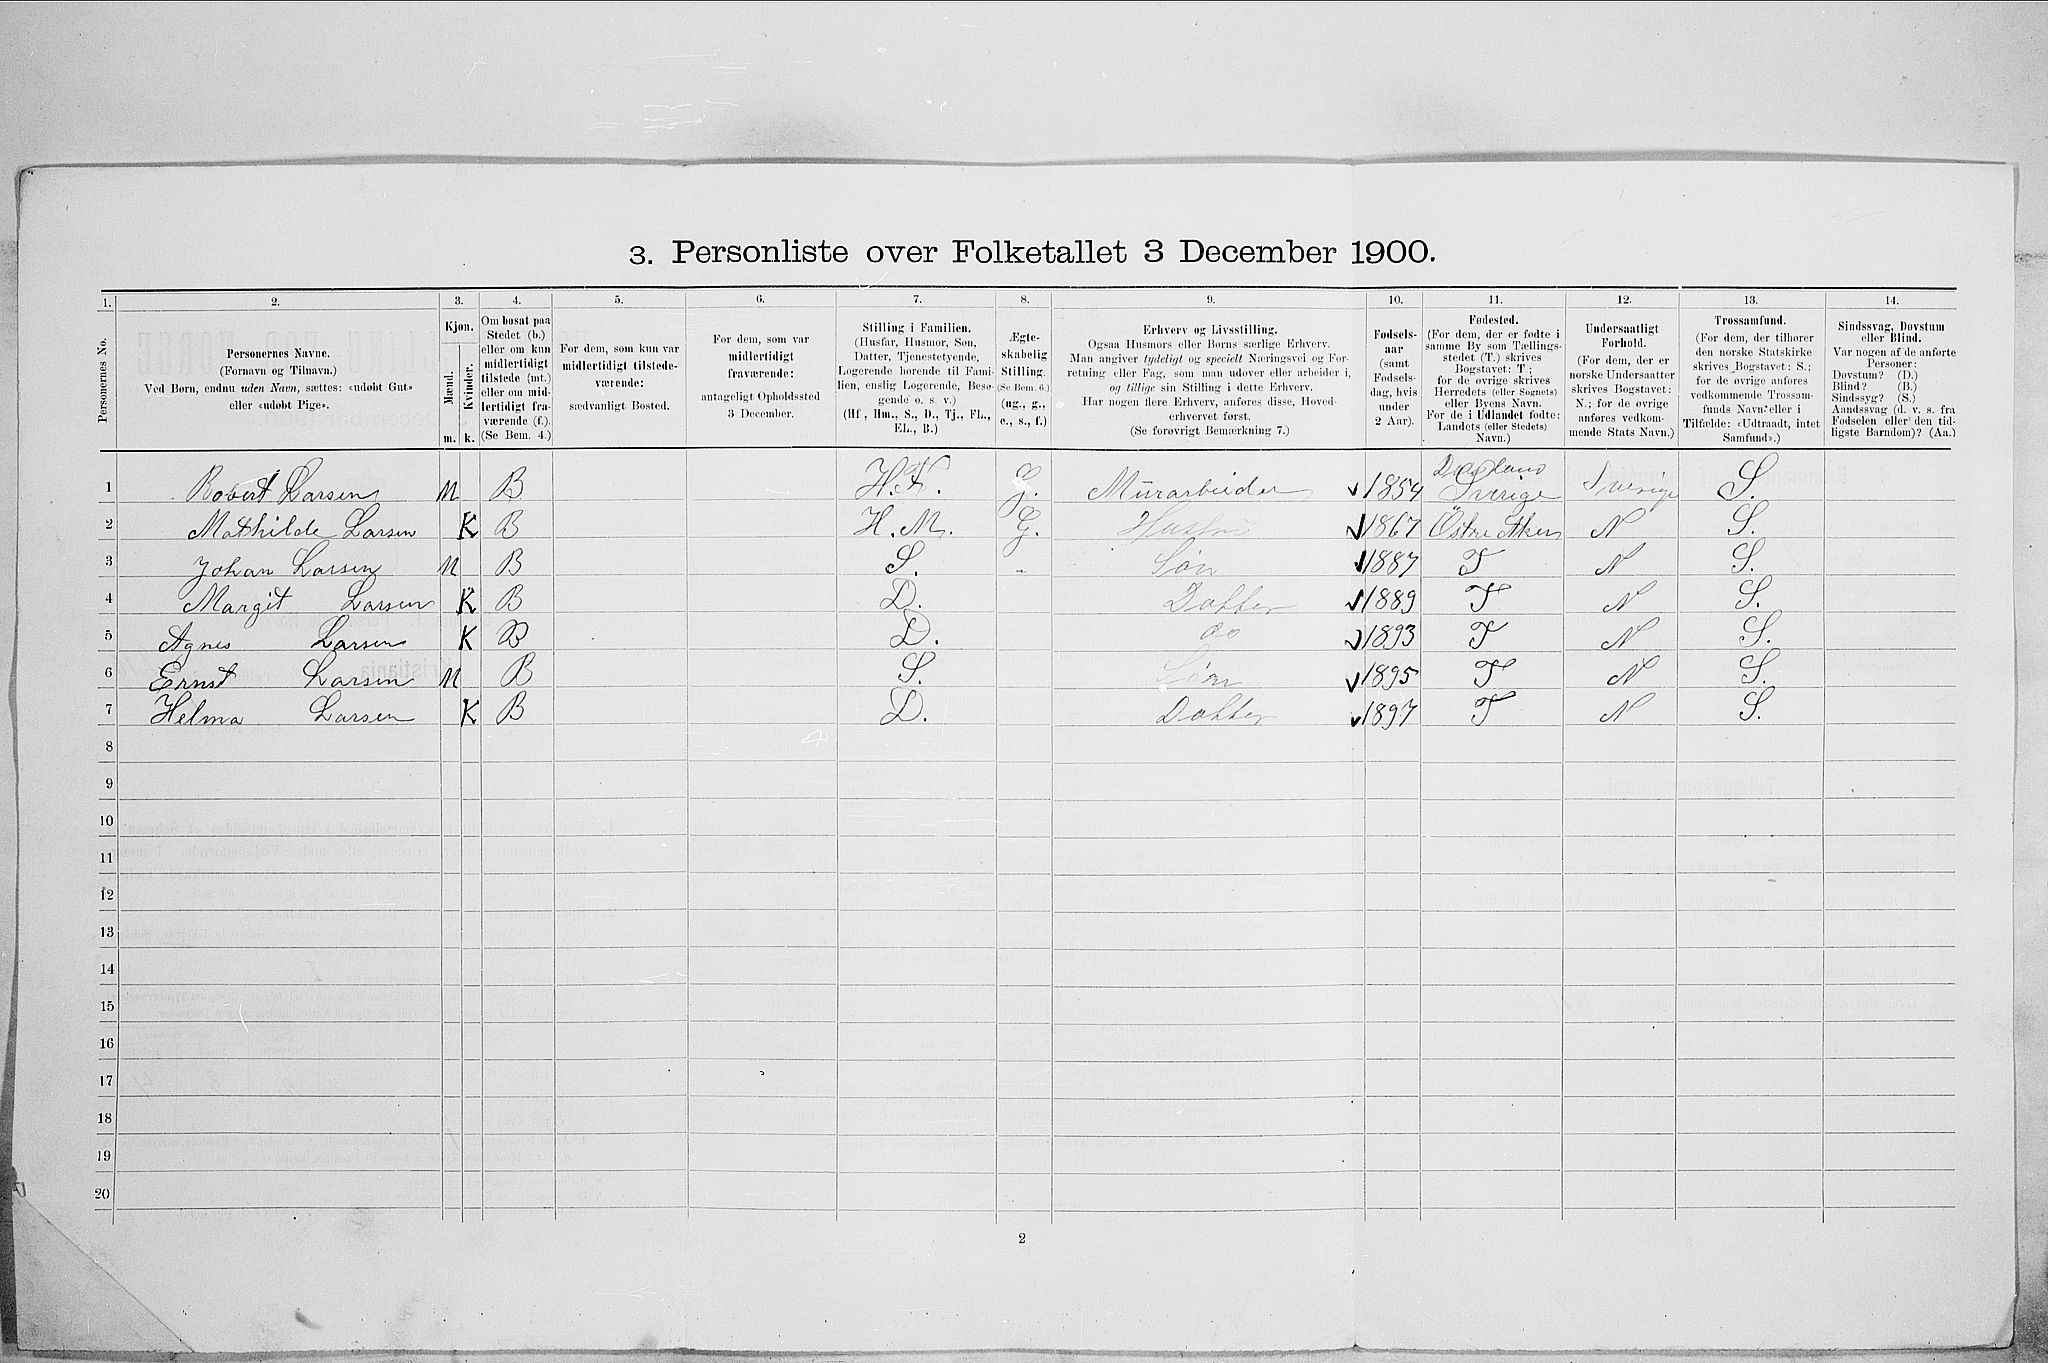 3. Personliste over Folketallet 3 December 1900.
1. 2. 3. 4. 5. 6. 7. 8. 9. 10. 11. 12. 13. 14.
Personernes No.
Personernes Navne.
(Fornavn og Tilnavn.)
Ved Børn, endnu uden Navn, sættes: «udøbt Gut»
eller «udøbt Pige».
Kjøn.
Mænd.
Kvinder.
m. k.
Om bosat paa
Stedet (b.)
eller om kun
midlertidigt
tilstede (mt.)
eller om mid-
lertidigt fra-
værende (f.).
(Se Bem. 4.)
For dem, som kun var
midlertidigt tilstede-
værende:
sædvanligt Bosted.
For dem, som var
midlertidigt
fraværende:
antageligt Opholdssted
3 December.
Stilling i Familien.
(Husfar, Husmor, Søn,
Datter, Tjenestetyende,
Logerende hørende til Fami-
lien, enslig Logerende, Besø-
gende o. s. v.)
(Hf., Hm., S., D., Tj., FL.,
EL., B.)
Ægte-
skabelig
Stilling.
(Se Bem. 6.)
(ug., g.,
e., s., f.)
Erhverv og Livsstilling.
Ogsaa Husmors eller Børns særlige Erhverv.
Man angiver tydeligt og specielt Næringsvei og For-
retning eller Fag, som man udøver eller arbeider i,
og tillige sin Stilling i dette Erhverv.
Har nogen flere Erhverv, anføres disse, Hoved-
erhvervet først.
(Se forøvrigt Bemærkning 7.)
Fødsels-
aar
(samt
Fødsels-
dag, hvis
under
2 Aar).
Fødested.
(For dem, der er fødte i
samme By som Tællings-
stedet (T.) skrives
Bogstavet: T.;
for de øvrige skrives
Herredets (eller Sognets)
eller Byens Navn.
For de i Udlandet fødte:
Landets (eller Stedets)
Navn.)
Undersaatligt
Forhold.
(For dem, der er
norske Undersaatter
skrives Bogstavet:
N.; for de øvrige
anføres vedkom-
mende Stats Navn.)
Trossamfund.
(For dem, der tilhører
den norske Statskirke
skrives Bogstavet: S.;
for de øvrige anføres
vedkommende Trossam-
funds Navn eller i
Tilfælde: «Udtraadt, intet
Samfund».)
Sindssvag, Døvstum
eller Blind.
Var nogen af de anførte
Personer:
Døvstum? (D.)
Blind? (B.)
Sindssyg? (S.)
Aandssvag (d. v. s. fra
Fødselen eller den tid-
ligste Barndom)? (Aa.)
1 Robert Larsen M B H.F. G. Murarbeider 1854 Sverige Sverige S.
2 Mathilde Larsen K B H.M. G. Hustru 1867 Östre Aker N S.
3 Johan Larsen M B S. " Søn 1887 T N S.
4 Margit Larsen K B D. Datter 1889 T N S.
5 Agnes Larsen K B D. do 1893 T N S.
6 Ernst Larsen M B S. Søn 1895 T N S.
7 Helma Larsen K B D. Datter 1897 T N S.
8
9
10
11
12
13
14
15
16
17
18
19
20
2